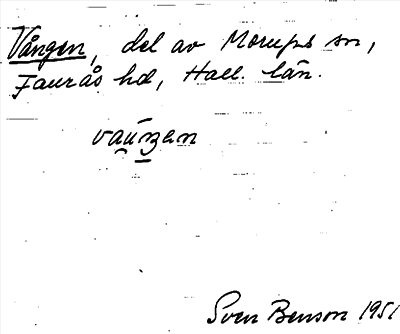 Vången, del av Morups sn,
Faurås hd, Hall. län.
Sven Benson 1951